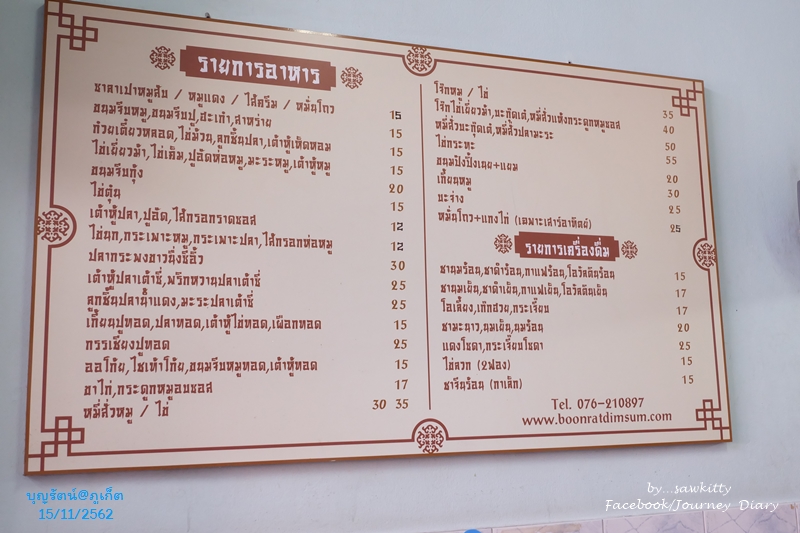 รายการอาหาร
ซาลาเปาหมูสับ / หมูแดง / ไส้ครีม / หมั่นโถว 15
ขนมจีบหมู,ขนมจีบปู,ฮะเก๋า,สาหร่าย 15
ก๋วยเตี๋ยวหลอด,ไข่ม้วน,ลูกชิ้นปลา,เต้าหู้เห็ดหอม 15
ไข่เยี่ยวม้า,ไข่เค็ม,ปูอัดห่อหมู,มะระหมู,เต้าหู้หมู 15
ขนมจีบกุ้ง 20
ไข่ตุ๋น 15
เต้าหู้ปลา,ปูอัด,ไส้กรอกราดซอส 12
ไข่นก,กระเพาะหมู,กระเพาะปลา,ไส้กรอกห่อหมู 12
ปลากระพงขาวนึ่งซีอิ๊ว 30
เต้าหู้ปลาเต้าซี่,พริกหวานปลาเต้าซี่ 25
ลูกชิ้นปลาน้ำแดง,มะระปลาเต้าซี่ 25
เกี้ยนปูทอด,ปลาทอด,เต้าหู้ไข่ทอด,เผือกทอด 15
กรรเชียงปูทอด 25
ออโก้ย,ไชเท้าโก้ย,ขนมจีบหมูทอด,เต้าหู้ทอด 15
ขาไก่,กระดูกหมูอบซอส 17
หมี่สั่วหมู / ไข่ 30 35
โจ๊กหมู / ไข่ 35
โจ๊กไข่เยี่ยวม้า,บะกุ๊ดเต๋,หมี่สั่วแห้งกระดูกหมูซอส 40
หมี่สั่วบะกุ๊ดเต๋,หมี่สั่วปลามะระ 50
ไข่กระทะ 55
ขนมปังปิ้งเนย+แยม 20
เกี้ยนหมู 30
บะจ่าง 25
หมั่นโถว+แกงไก่ (เฉพาะเสาร์อาทิตย์) 25
รายการเครื่องดื่ม
ชานมร้อน,ชาดำร้อน,กาแฟร้อน,โอวัลตินร้อน 15
ชานมเย็น,ชาดำเย็น,กาแฟเย็น,โอวัลตินเย็น 17
โอเลี้ยง,เก๊กฮวย,กระเจี๊ยบ 17
ชามะนาว,นมเย็น,นมร้อน 20
แดงโซดา,กระเจี๊ยบโซดา 25
ไข่ลวก (2ฟอง) 15
ชาจีนร้อน (กาเล็ก) 15
Tel. 076-210897
www.boonratdimsum.com
บุญรัตน์@ภูเก็ต
15/11/2562
by...sawkitty
Facebook/Journey Diary